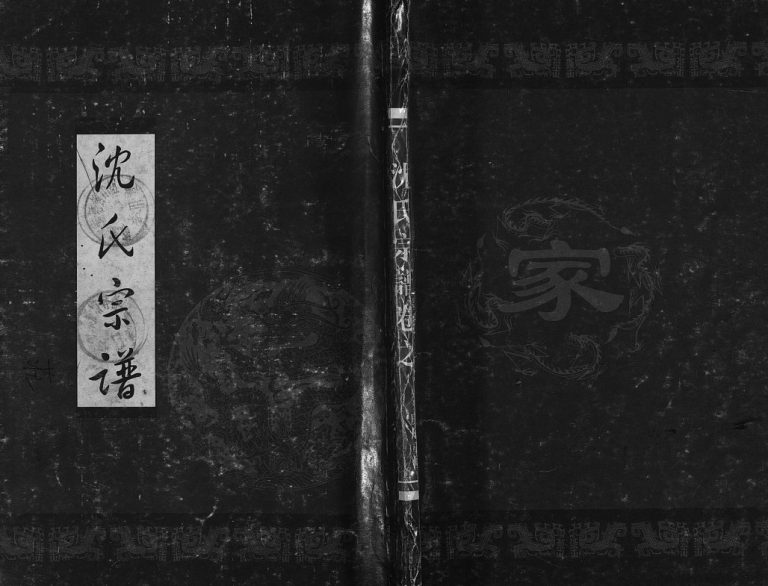 沈氏宗譜
沈氏宗譜卷之
家